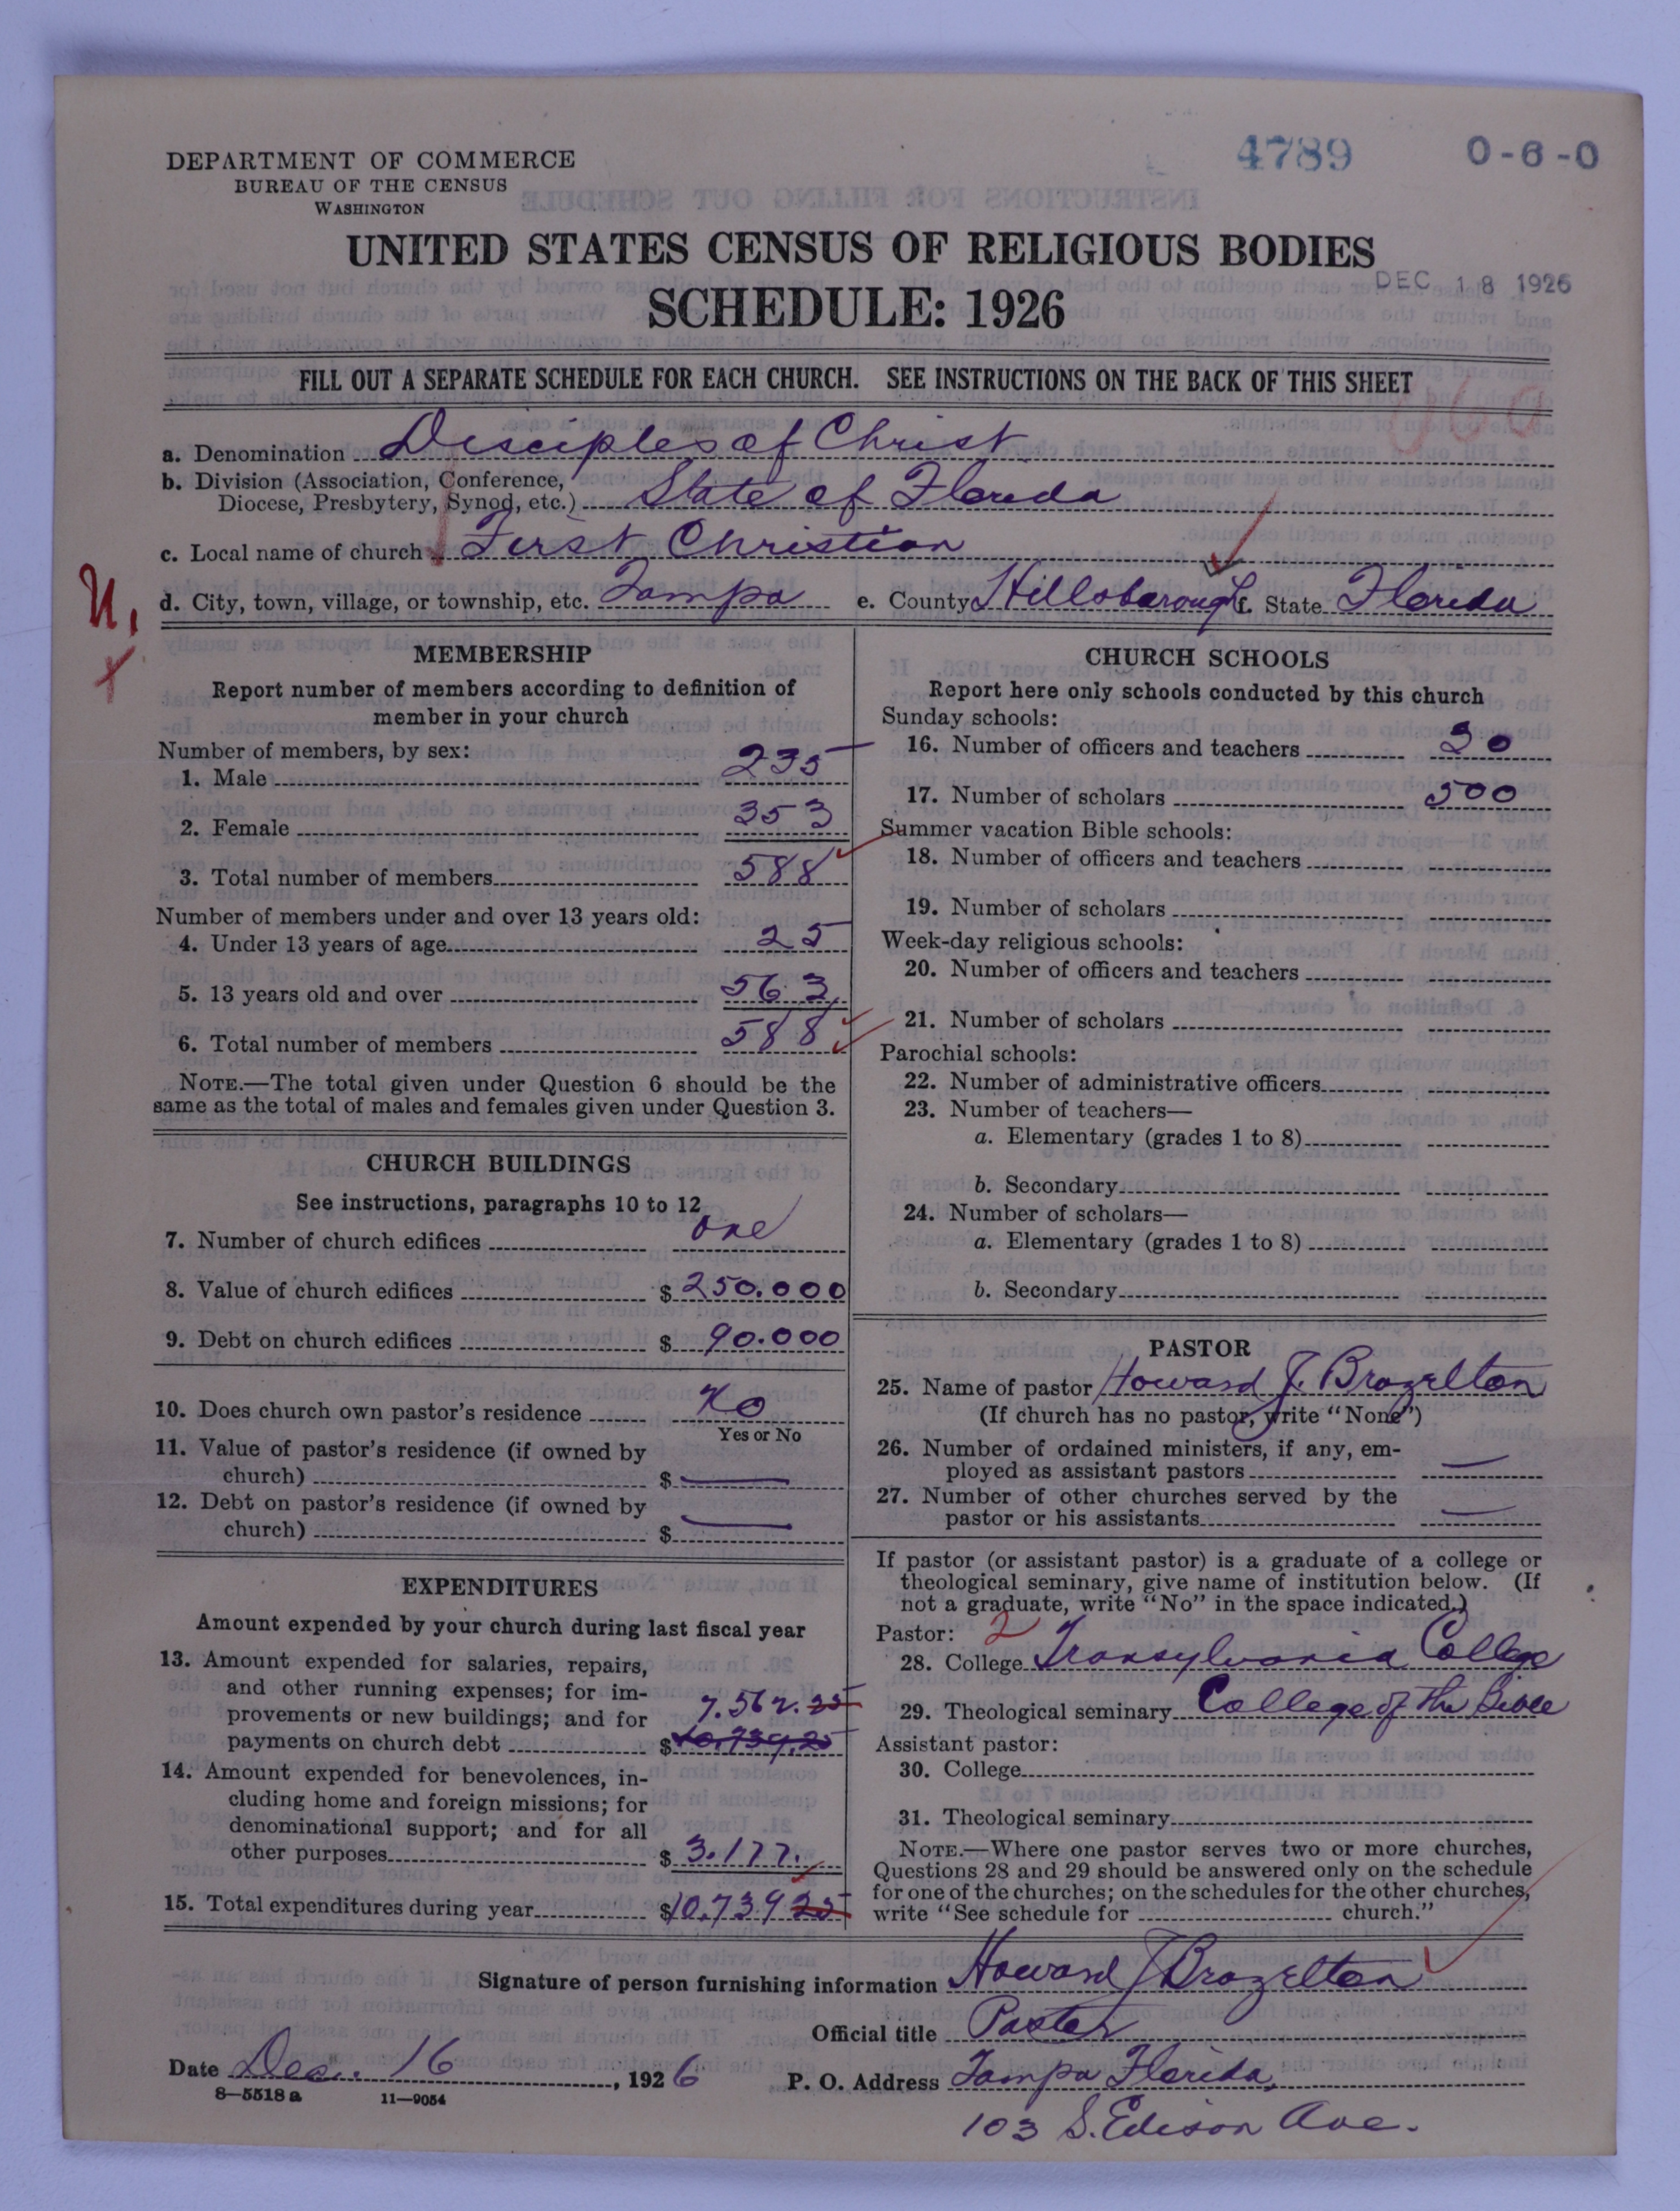 4789
0-6-0
DEPARTMENT OF COMMERCE
BUREAU OF THE CENSUS
WASHINGTON
UNITED STATES CENSUS OF RELIGIOUS BODIES
DEC 18 1926
SCHEDULE: 1926
FILL OUT A SEPARATE SCHEDULE FOR EACH CHURCH. SEE INSTRUCTIONS ON THE BACK OF THIS SHEET
a. Denomination Disciples of Christ
b. Division (Association, Conference,
Diocese, Presbytery, Synod, etc.) State of Florida
c. Local name of church First Christian
d. City, town, village, or township, etc. Tampa e. County Hillsborough f. State Florida
MEMBERSHIP
Report number of members according to definition of
member in your church
Number of members, by sex:
1. Male 235
2. Female 353
3. Total number of members 588
Number of members under and over 13 years old:
4. Under 13 years of age 25
5. 13 years old and over 563
6. Total number of members 588
NOTE.—The total given under Question 6 should be the
same as the total of males and females given under Question 3.
CHURCH BUILDINGS
See instructions, paragraphs 10 to 12
7. Number of church edifices one
8. Value of church edifices $ 250.000
9. Debt on church edifices $ 90.000
10. Does church own pastor's residence No
Yes or No
11. Value of pastor's residence (if owned by
church) $ —
12. Debt on pastor's residence (if owned by
church) $ —
EXPENDITURES
Amount expended by your church during last fiscal year
13. Amount expended for salaries, repairs,
and other running expenses; for im-
provements or new buildings; and for 7.562.25
payments on church debt $ 10.739.25
14. Amount expended for benevolences, in-
cluding home and foreign missions; for
denominational support; and for all
other purposes $ 3.177.
15. Total expenditures during year $10.739 25
CHURCH SCHOOLS
Report here only schools conducted by this church
Sunday schools:
16. Number of officers and teachers 30
17. Number of scholars 500
Summer vacation Bible schools:
18. Number of officers and teachers
19. Number of scholars
Week-day religious schools:
20. Number of officers and teachers
21. Number of scholars
Parochial schools:
22. Number of administrative officers
23. Number of teachers—
a. Elementary (grades 1 to 8)
b. Secondary
24. Number of scholars—
a. Elementary (grades 1 to 8)
b. Secondary
PASTOR
25. Name of pastor Howard J. Brazelton
(If church has no pastor, write "None")
26. Number of ordained ministers, if any, em-
ployed as assistant pastors —
27. Number of other churches served by the
pastor or his assistants —
If pastor (or assistant pastor) is a graduate of a college or
theological seminary, give name of institution below. (If
not a graduate, write "No" in the space indicated.)
Pastor: 2
28. College Transylvania College
29. Theological seminary College of the Bible
Assistant pastor:
30. College
31. Theological seminary
NOTE.—Where one pastor serves two or more churches,
Questions 28 and 29 should be answered only on the schedule
for one of the churches; on the schedules for the other churches,
write "See schedule for church."
Signature of person furnishing information Howard J Brazelton
Official title Pastor
Date Dec. 16, 1926 P. O. Address Tampa Florida,
8—5518 a 11—9054
103 S. Edison Ave.